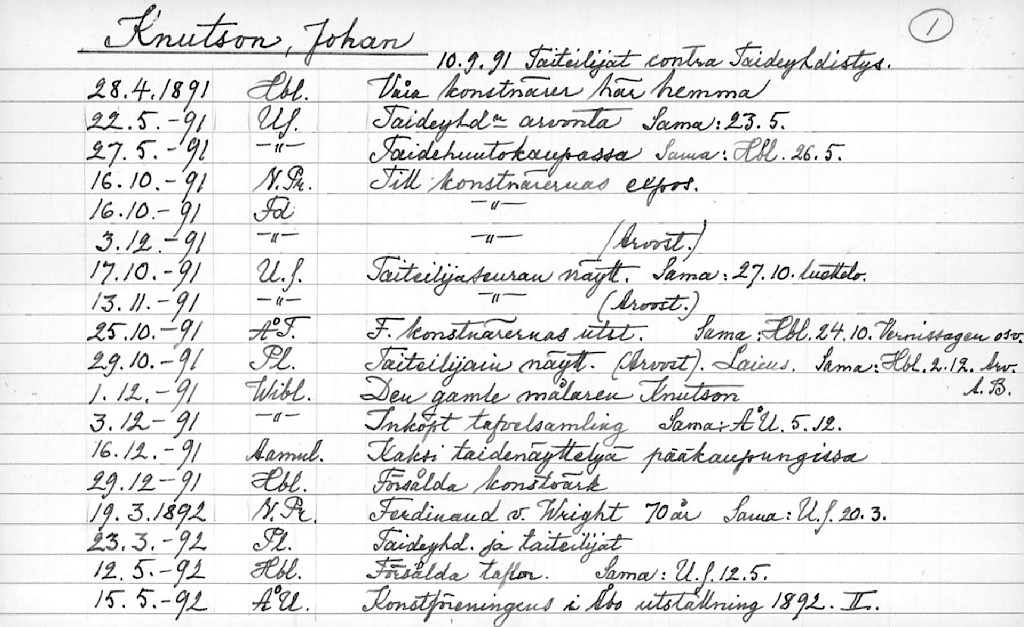 Knutson, Johan 1
10.9.91 Taiteilijat contra Taideyhdistys.
28.4.1891 Hbl. Våra konstnärer här hemma
22.5.-91 U.S. Taideyhd:n arvonta Sama: 23.5.
27.5.-91 -"- Taidehuutokaupassa Sama: Hbl. 26.5.
16.10.-91 N.Pr. Till konstnärernas expos.
16.10.-91 Fd -"-
3.12.-91 -"- -"- (Arvost.)
17.10.-91 U.S. Taiteilijaseuran näytt. Sama: 27.10. luettelo.
13.11.-91 -"- -"- (Arvost.)
25.10.-91 ÅT. F. konstnärernas utst. Sama: Hbl. 24.10. Vernissagen osv.
29.10.-91 Pl. Taiteilijain näytt. (Arvost). Laius. Sama: Hbl. 2.12. Arv.
A.B.
1.12.-91 Wibl. Den gamle målaren Knutson
3.12-91 -"- Inköpt tafvelsamling Sama: ÅU. 5.12.
16.12.-91 Aamul. Kaksi taidenäyttelyä pääkaupungissa
29.12-91 Hbl. Försålda konstvärk
19.3.1892 N.Pr. Ferdinand v. Wright 70 år Sama: U.S. 20.3.
23.3.-92 Pl. Taideyhd. ja taiteilijat
12.5.-92 Hbl. Försålda taflor. Sama: U.S. 12.5.
15.5.-92 ÅU. Konstföreningens i Åbo utställning 1892. II.